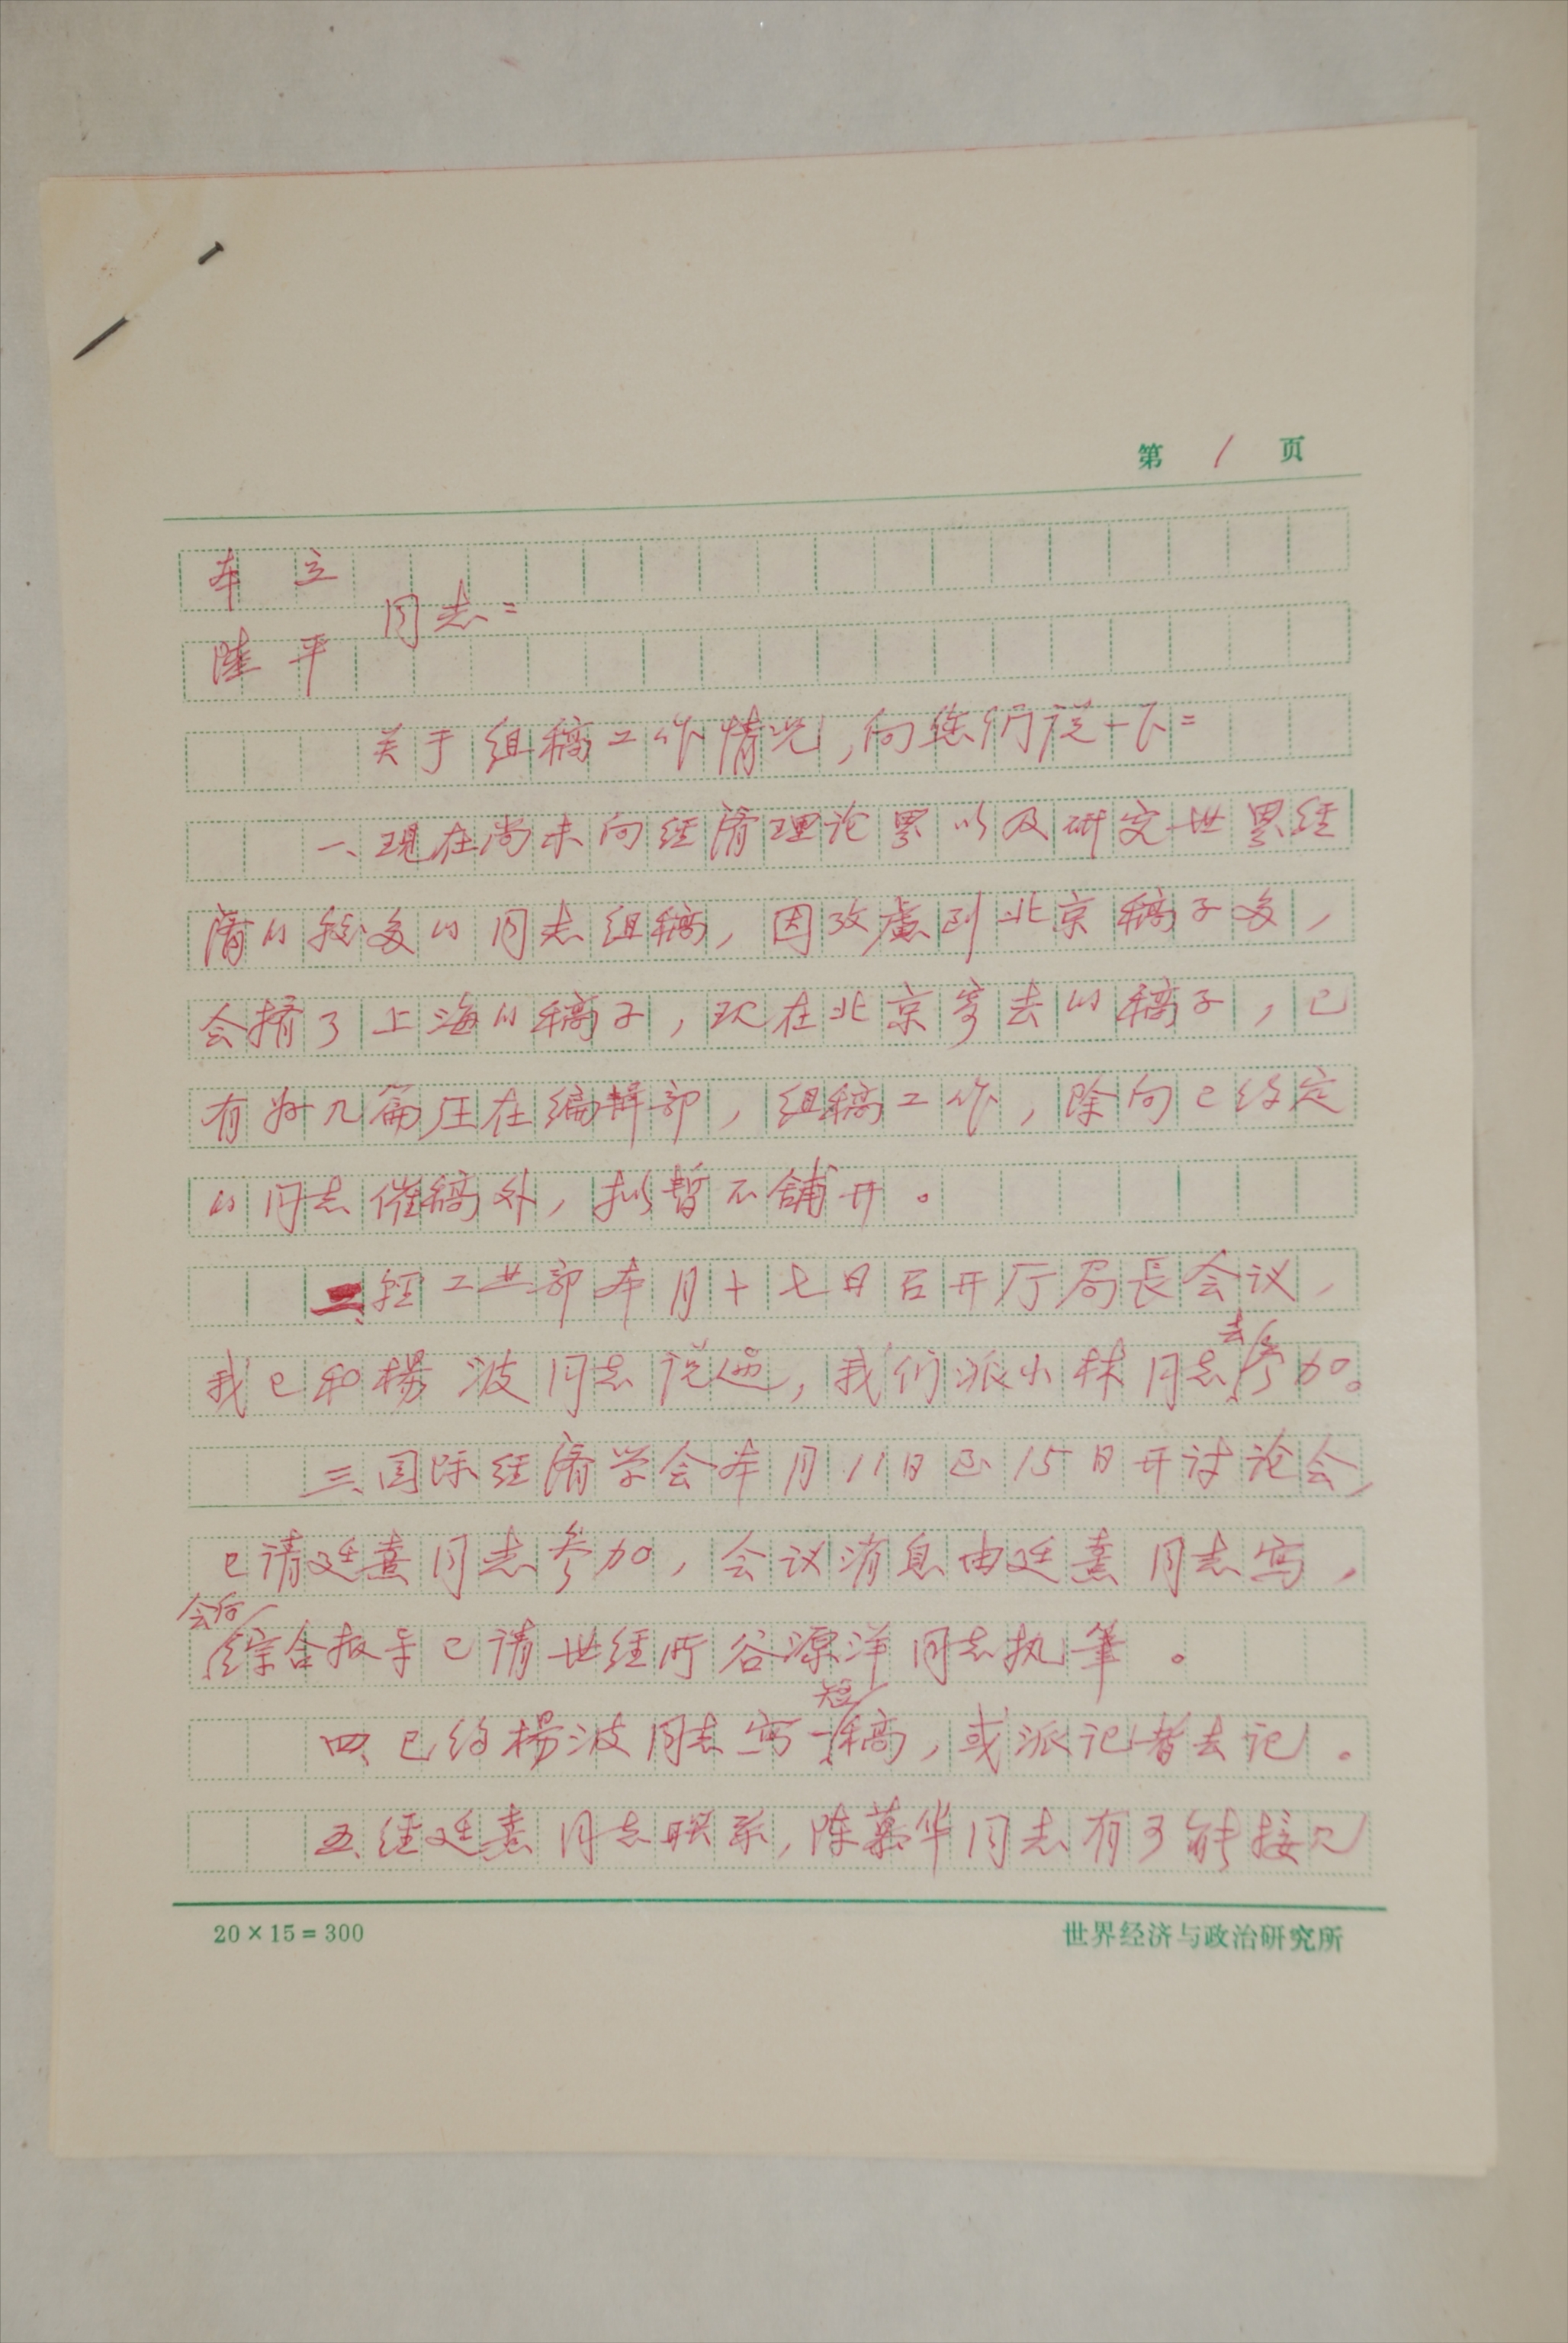 第 1 页
本立
同志:
陆平
关于组稿工作情况,向您们说一下:
一、现在尚未向经济理论界以及研究世界经
济的较多的同志组稿,因攷虑到北京稿子多,
会挤了上海的稿子,现在北京寄去的稿子,已
有好几篇压在编辑部,组稿工作,除向已约定
的同志催稿外,拟暂不铺开。
二、轻工业部本月十七日召开厅局長会议,
我已和楊波同志说过,我们派小林同志去参加。
三、国际经济学会本月11日至15日开讨论会,
已请廷熹同志参加,会议消息由廷熹同志写,
会后综合报导已请世经所谷源洋同志执筆。
四、已约楊波同志写一短稿,或派记者去记。
五、经廷熹同志联系,陈慕华同志有可能接见
20×15=300
世界经济与政治研究所